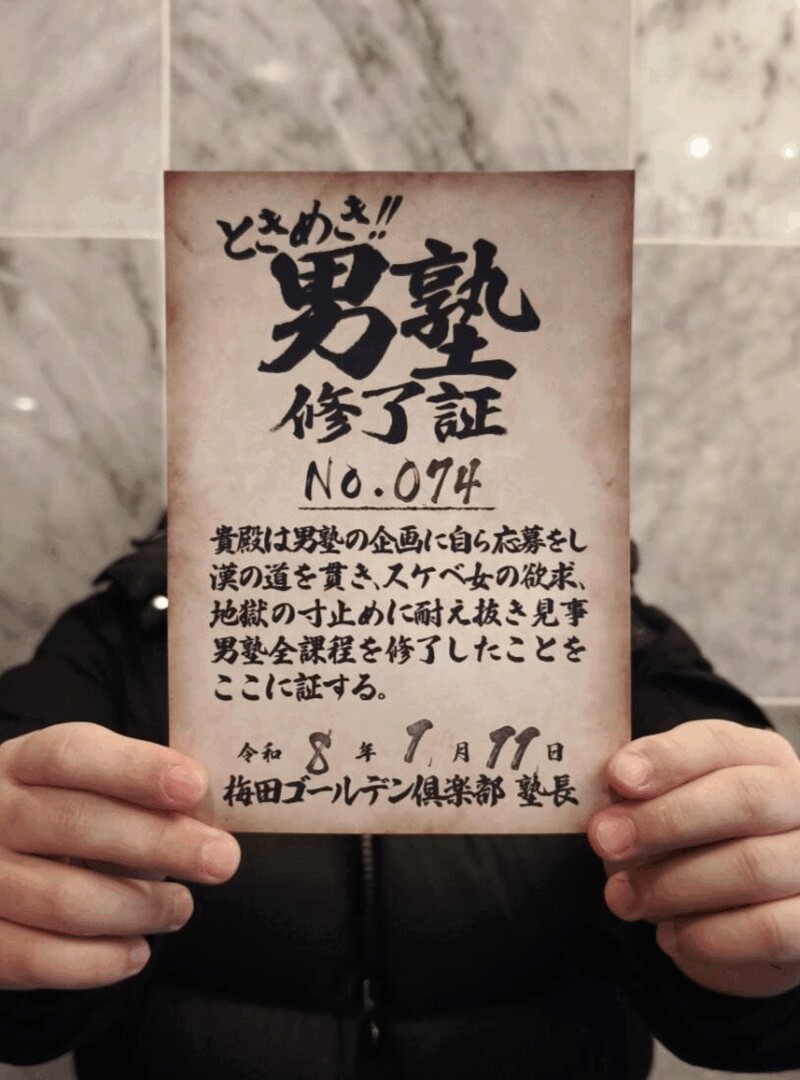 ときめき!!
男塾
修了証
No.074
貴殿は男塾の企画に自ら応募をし
漢の道を貫き、スケベ女の欲求、
地獄の寸止めに耐え抜き見事
男塾全課程を修了したことを
ここに証する。
令和 8 年 1 月 11 日
梅田ゴールデン倶楽部 塾長